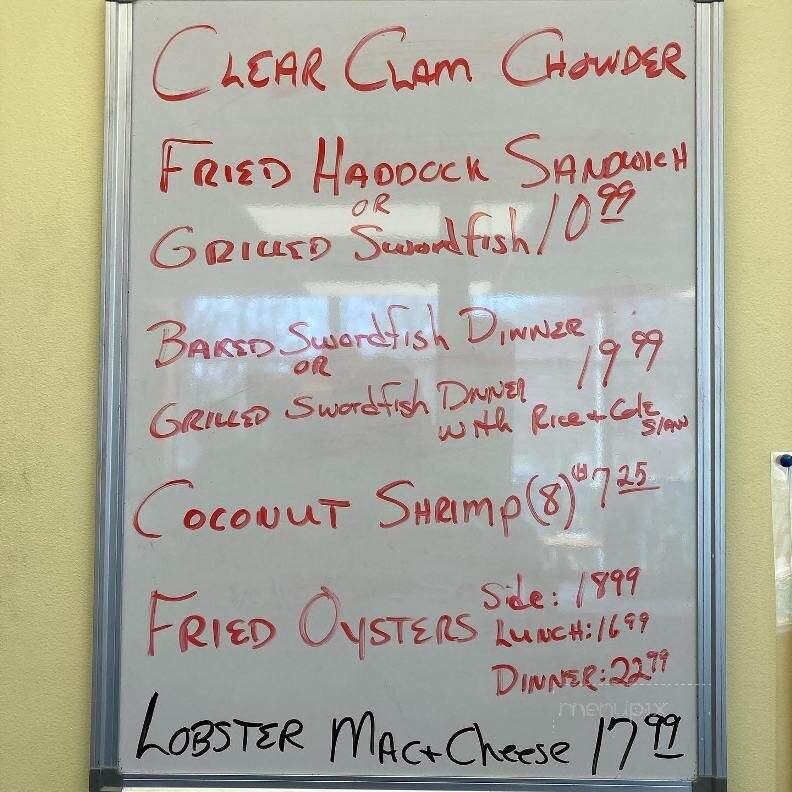 CLEAR CLAM CHOWDER
FRIED HADDOCK SANDWICH
OR
GRILLED Swordfish 10.99
BAKED Swordfish DINNER
OR
19 99
GRILLED Swordfish DINNER
with Rice + Cole
SlAW
COCONUT SHRIMP (8) 7 25
FRIED OYSTERS Side: 1899
LUNCH: 16 99
DINNER: 22 99
menupix
LOBSTER MAC + Cheese 17 99